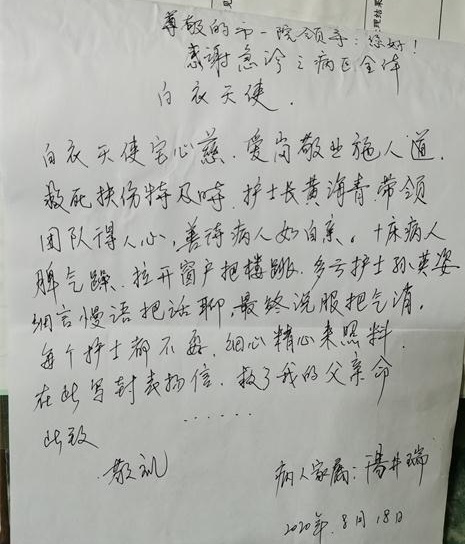 尊敬的市一院领导：您好！
感谢急诊之病区全体
白衣天使．
白衣天使宅心慈．爱岗敬业施人道．
救死扶伤特及时．护士长黄海青．带领
团队得人心，善待病人如自亲。十床病人
脾气躁．拉开窗户把楼跳．多亏护士孙英姿
细言慢语把话聊，最终说服把气消．
每个护士都不孬．细心精心来照料．
在此写封表扬信．救了我的父亲命
······
此致
敬礼
病人家属：汤井瑞
2020年．8月18日